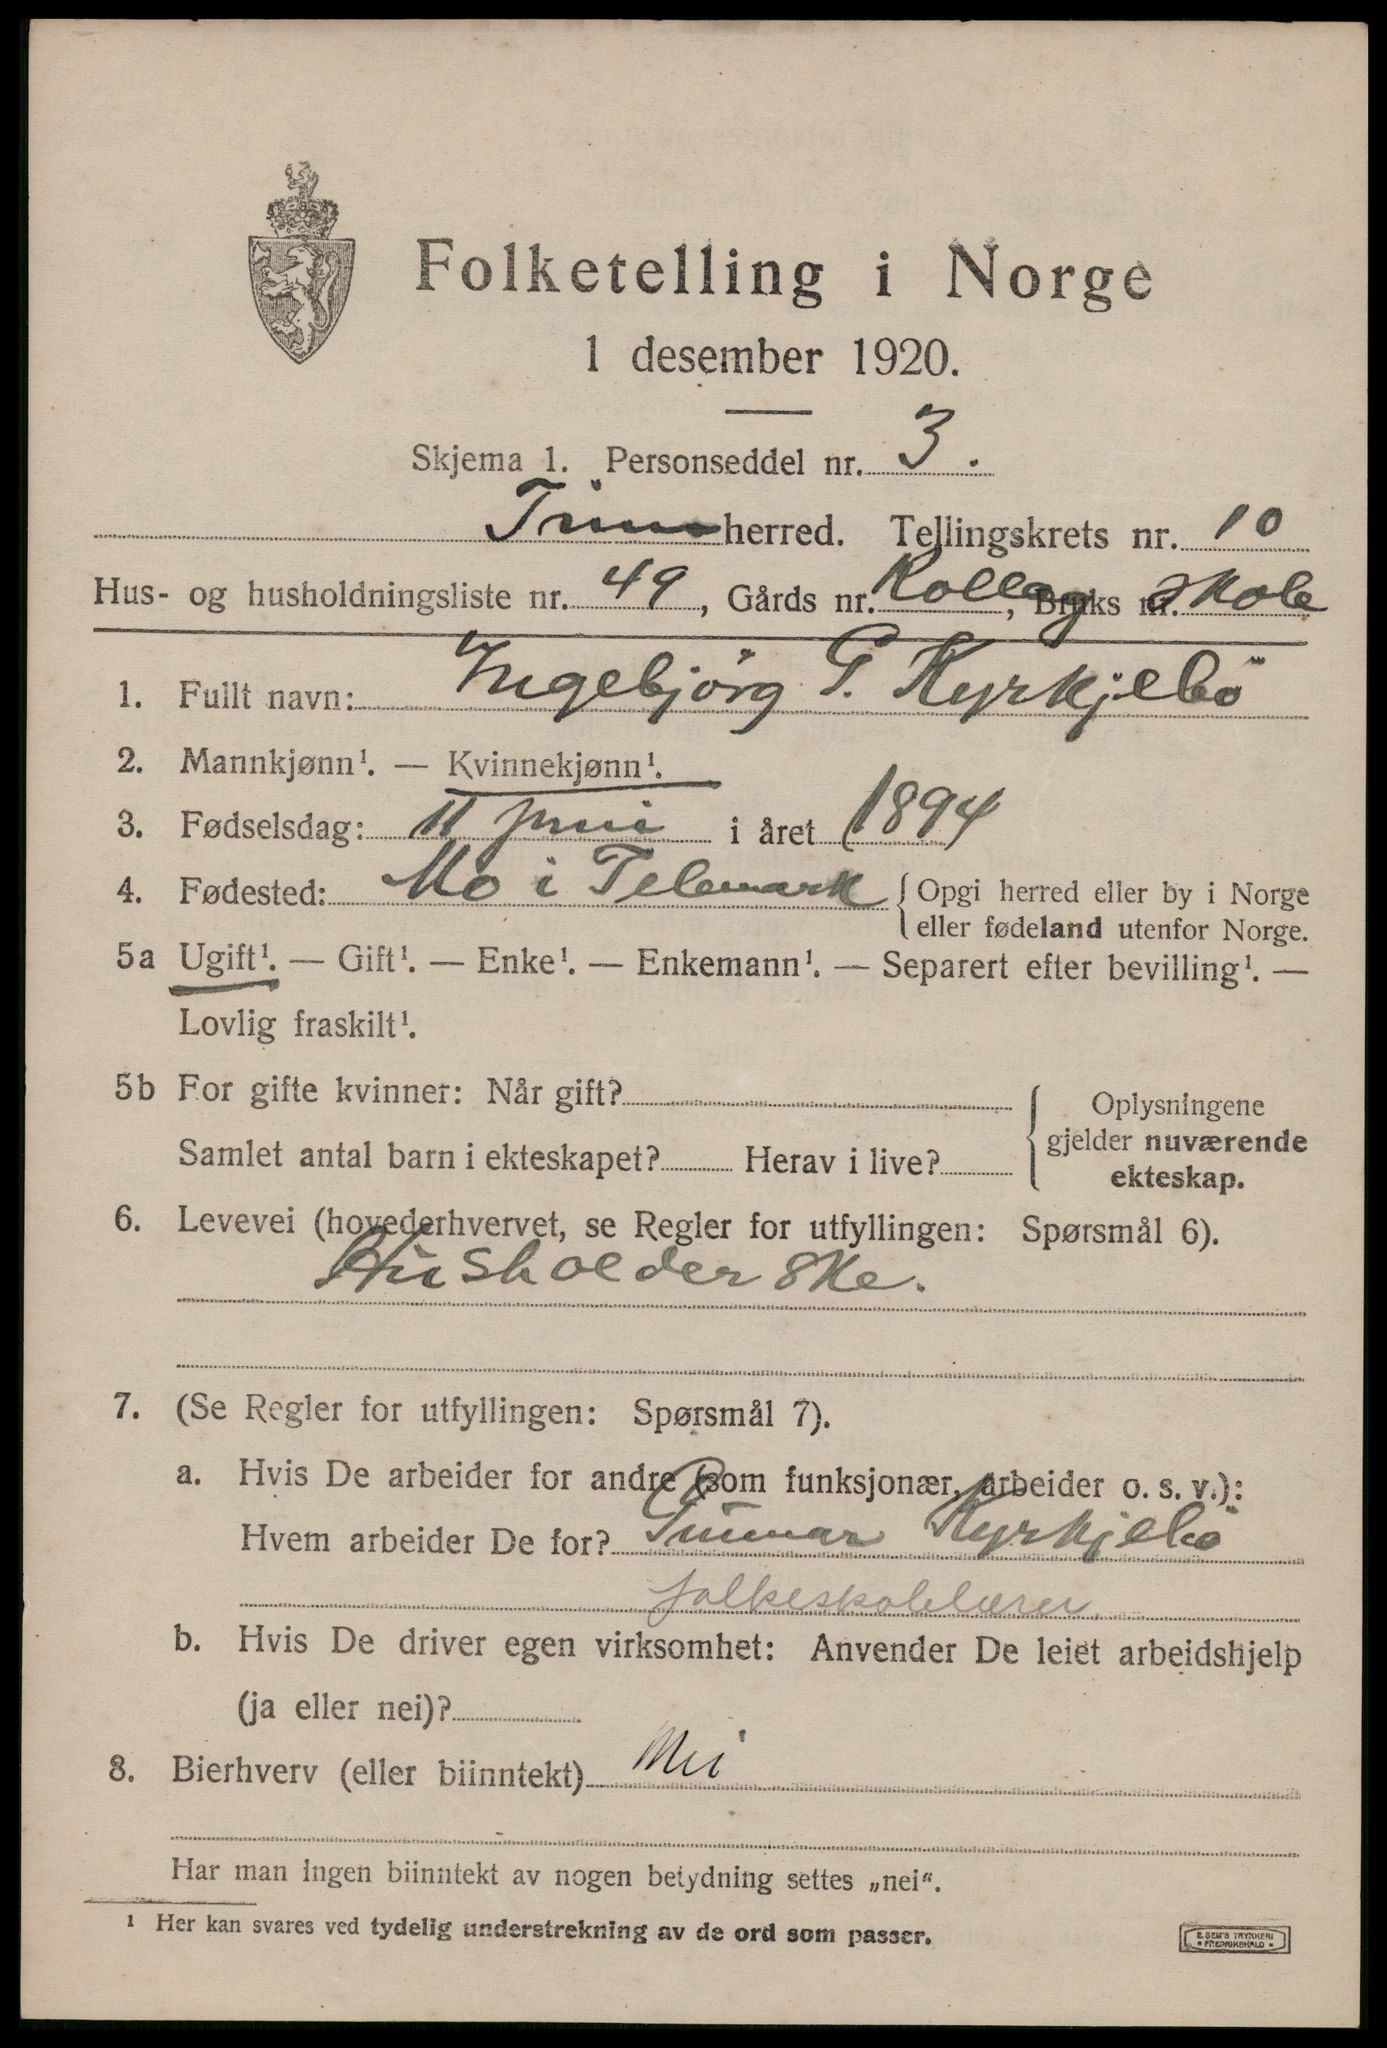 Folketelling i Norge
1 desember 1920.
Skjema 1. Personseddel nr. 3.
herred. Tellingskrets nr. 10
Hus- og husholdningsliste nr. 49, Gårds nr. Kolleg, Bruks nr. skole
1. Fullt navn: Ingebjørg G. Kyrkjebö
2. Mannkjønn¹. — Kvinnekjønn¹.
3. Fødselsdag: 11 juni i året 1894
4. Fødested: Mo i Telemark { Opgi herred eller by i Norge
eller fødeland utenfor Norge.
5a Ugift¹. — Gift¹. — Enke¹. — Enkemann¹. — Separert efter bevilling¹. —
Lovlig fraskilt¹.
5b For gifte kvinner: Når gift? { Oplysningene
gjelder nuværende
ekteskap.
Samlet antal barn i ekteskapet? Herav i live?
6. Levevei (hovederhvervet, se Regler for utfyllingen: Spørsmål 6).
Husholderske.
7. (Se Regler for utfyllingen: Spørsmål 7).
a. Hvis De arbeider for andre (som funksjonær, arbeider o. s. v.):
Hvem arbeider De for? Gunnar Kyrkjebö
folkeskolelærer
b. Hvis De driver egen virksomhet: Anvender De leiet arbeidshjelp
(ja eller nei)?
8. Bierhverv (eller biinntekt) Nei
Har man ingen biinntekt av nogen betydning settes „nei“.
¹ Her kan svares ved tydelig understrekning av de ord som passer.
E. SEM'S TRYKKERI
FREDRIKSHALD